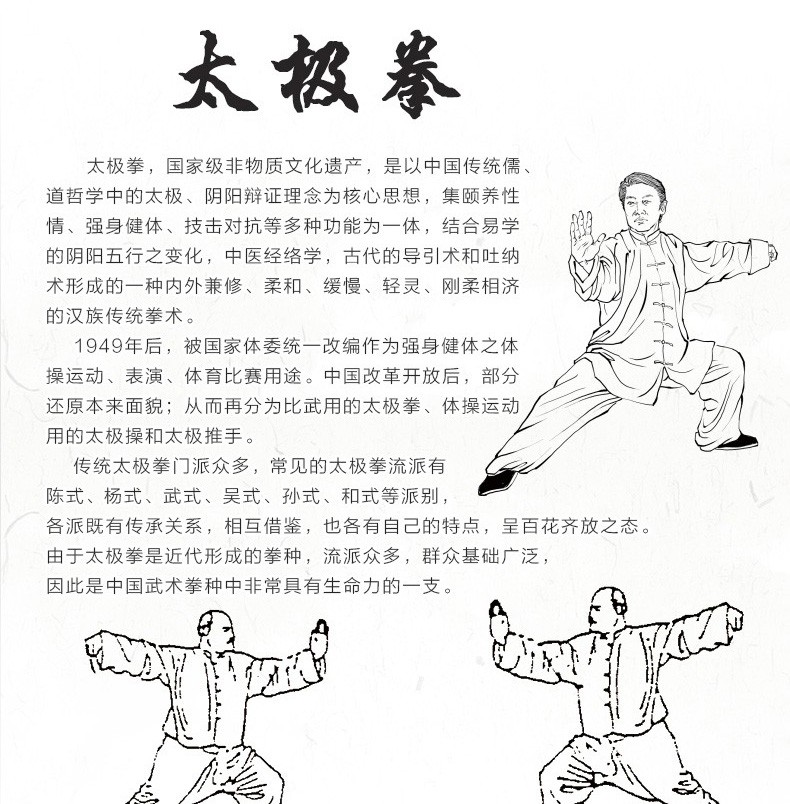 太极拳
太极拳，国家级非物质文化遗产，是以中国传统儒、
道哲学中的太极、阴阳辩证理念为核心思想，集颐养性
情、强身健体、技击对抗等多种功能为一体，结合易学
的阴阳五行之变化，中医经络学，古代的导引术和吐纳
术形成的一种内外兼修、柔和、缓慢、轻灵、刚柔相济
的汉族传统拳术。
1949年后，被国家体委统一改编作为强身健体之体
操运动、表演、体育比赛用途。中国改革开放后，部分
还原本来面貌；从而再分为比武用的太极拳、体操运动
用的太极操和太极推手。
传统太极拳门派众多，常见的太极拳流派有
陈式、杨式、武式、吴式、孙式、和式等派别，
各派既有传承关系，相互借鉴，也各有自己的特点，呈百花齐放之态。
由于太极拳是近代形成的拳种，流派众多，群众基础广泛，
因此是中国武术拳种中非常具有生命力的一支。